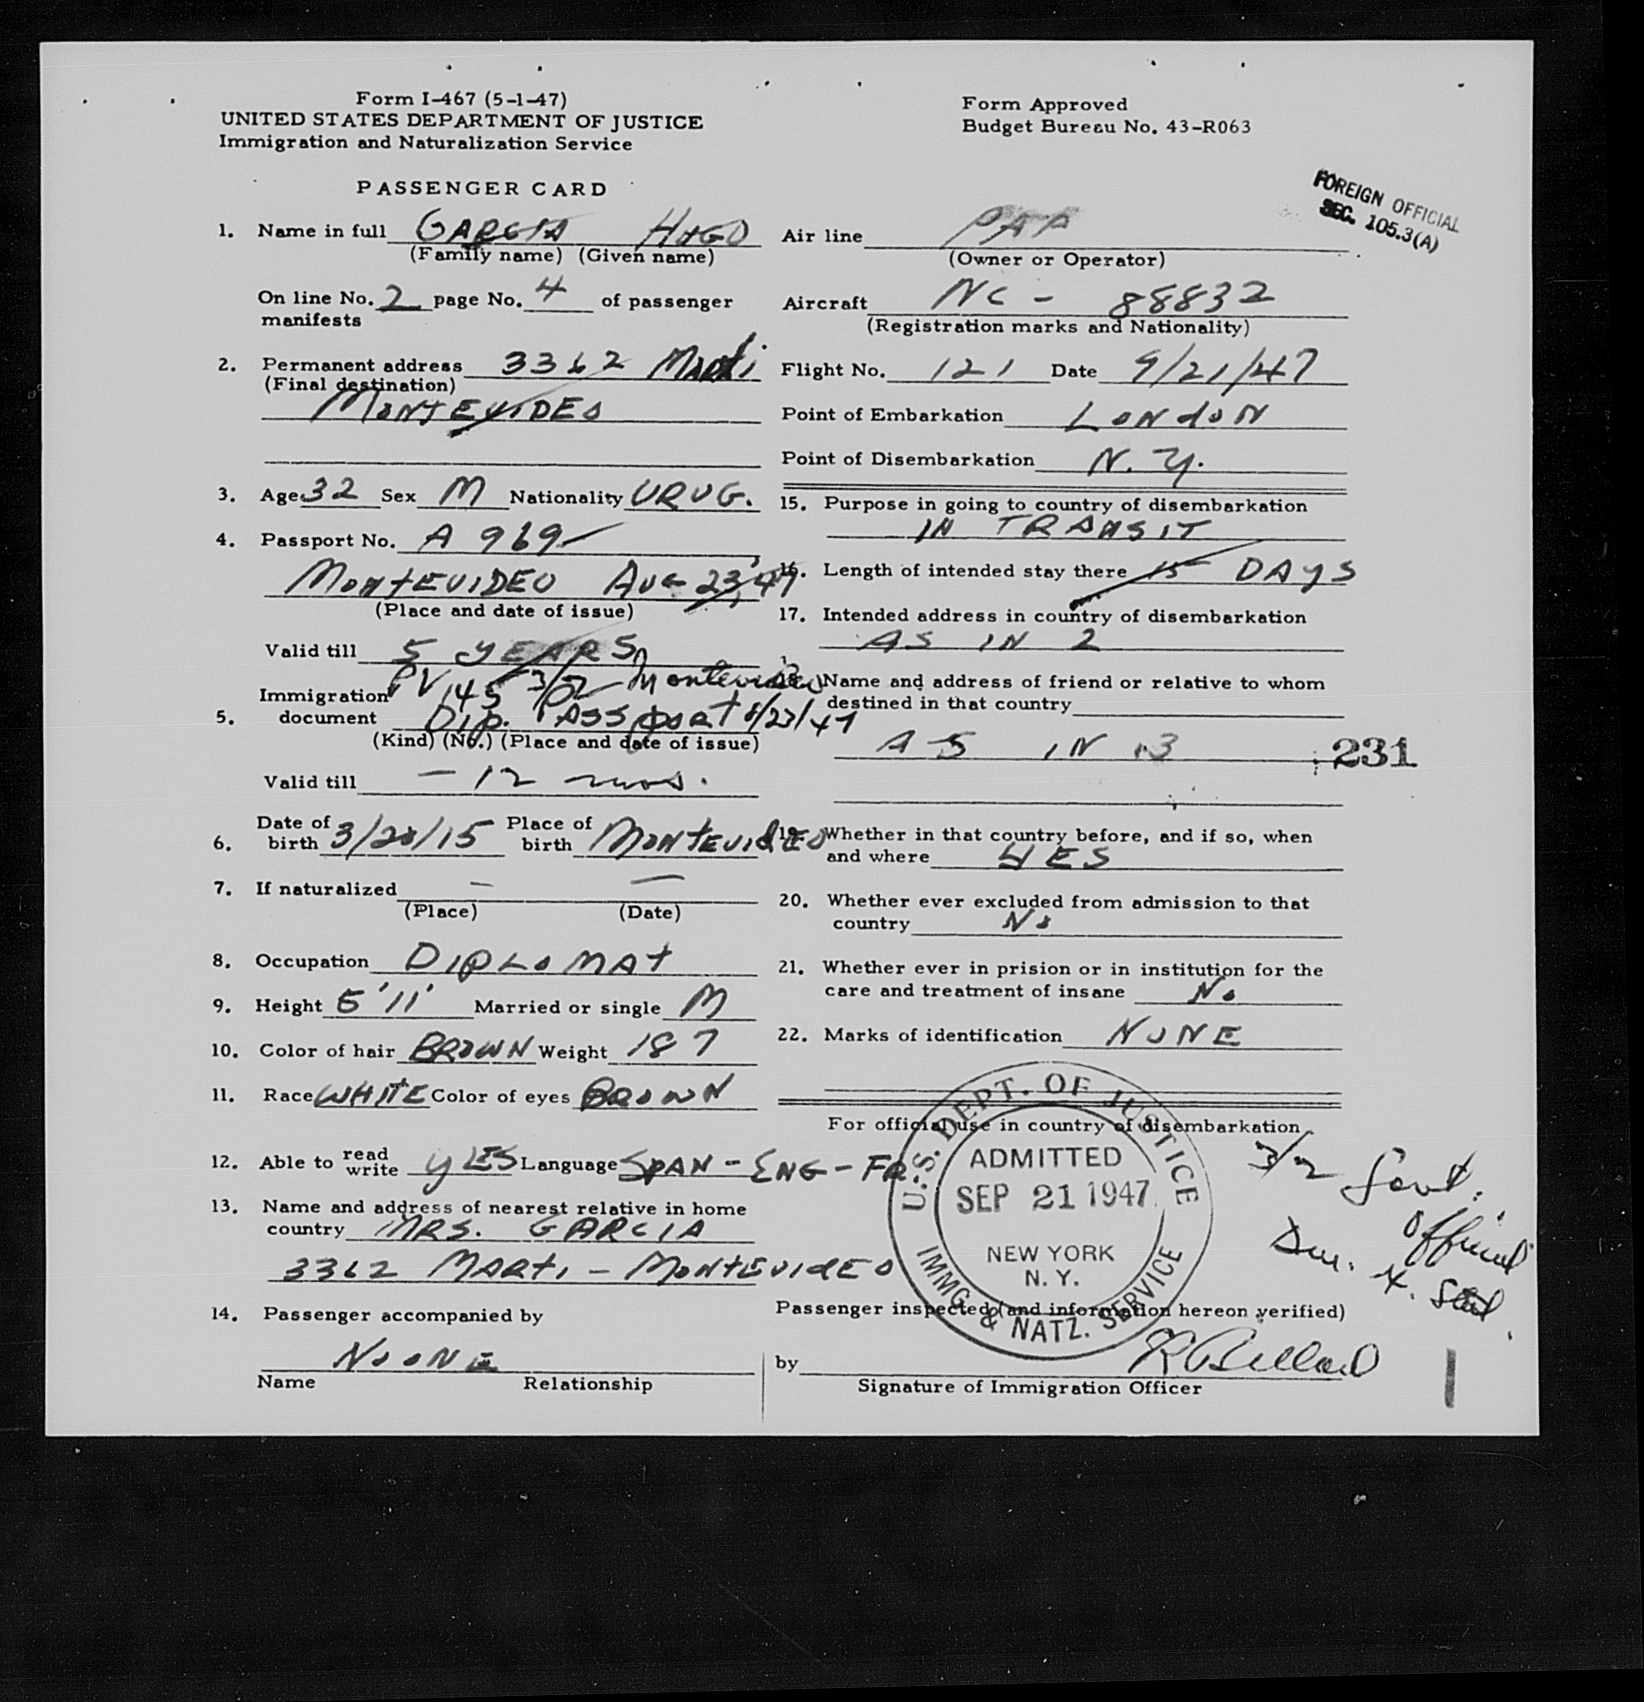 Form I-467 (5-1-47)
UNITED STATES DEPARTMENT OF JUSTICE
Immigration and Naturalization Service
PASSENGER CARD
Form Approved
Budget Bureau No. 43-R063
FOREIGN OFFICIAL
SEC. 105.3(A)
1. Name in full GARCIA HUGO
(Family name) (Given name)
On line No. 2 page No. 4 of passenger
manifests
2. Permanent address 3362 Marti
(Final destination)
MONTEVIDEO
3. Age 32 Sex M Nationality URUG.
4. Passport No. A 969
MONTEVIDEO AUG 23, 47
(Place and date of issue)
Valid till 5 YEARS
PV 145 3/2 Montevideo
Immigration
5. document Dip. PASSport 8/23/47
(Kind) (No.) (Place and date of issue)
Valid till - 12 mos.
6. Date of birth 3/20/15 Place of birth MONTEVIdEO
7. If naturalized — —
(Place) (Date)
8. Occupation DIPLOMAT
9. Height 5'11' Married or single M
10. Color of hair BROWN Weight 187
11. Race WHITE Color of eyes BROWN
12. Able to read write YES Language SPAN - ENG - FR.
13. Name and address of nearest relative in home
country MRS. GARCIA
3362 MARTI - MONTEVIdEO
14. Passenger accompanied by
NOONE
Name Relationship
Air line PAA
(Owner or Operator)
Aircraft NC - 88832
(Registration marks and Nationality)
Flight No. 121 Date 9/21/47
Point of Embarkation LONdON
Point of Disembarkation N.Y.
15. Purpose in going to country of disembarkation
IN TRANSIT
16. Length of intended stay there 15 DAYS
17. Intended address in country of disembarkation
AS IN 2
18. Name and address of friend or relative to whom
destined in that country
AS IN 13
231
19. Whether in that country before, and if so, when
and where YES
20. Whether ever excluded from admission to that
country No
21. Whether ever in prision or in institution for the
care and treatment of insane No
22. Marks of identification NONE
For official use in country of disembarkation
U.S. DEPT. OF JUSTICE
ADMITTED
SEP 21 1947
NEW YORK
N. Y.
IMMG. & NATZ. SERVICE
3/2 Govt.
Official
Passenger inspected (and information hereon verified)
by
Signature of Immigration Officer